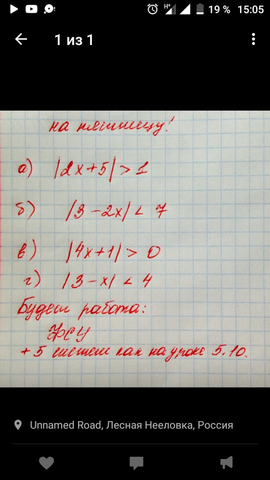 19 % 15:05
1 из 1
на пятницу!
а) |2x+5| > 1
б) |3-2x| < 7
в) |4x+1| > 0
г) |3-x| < 4
Будет работа:
ФСУ
+ 5 систем как на уроке 5.10.
Unnamed Road, Лесная Нееловка, Россия